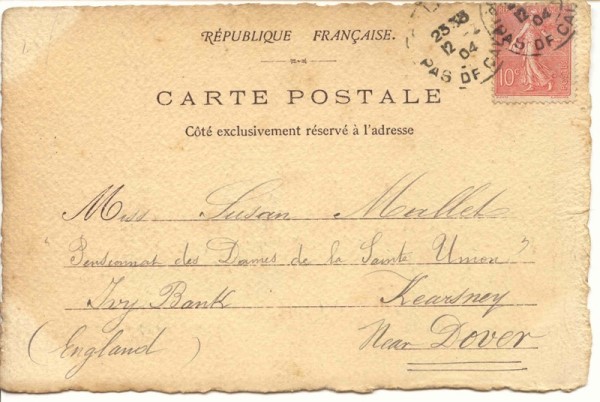 RÉPUBLIQUE FRANÇAISE.
CARTE POSTALE
Côté exclusivement réservé à l'adresse
10c
23 35
12
04
PAS DE CAL
12
04
PAS DE CAL
Miss Susan Mallet
Pensionnat des Dames de la Sainte Union
Ivy Bank Kearsney
(England) Near Dover